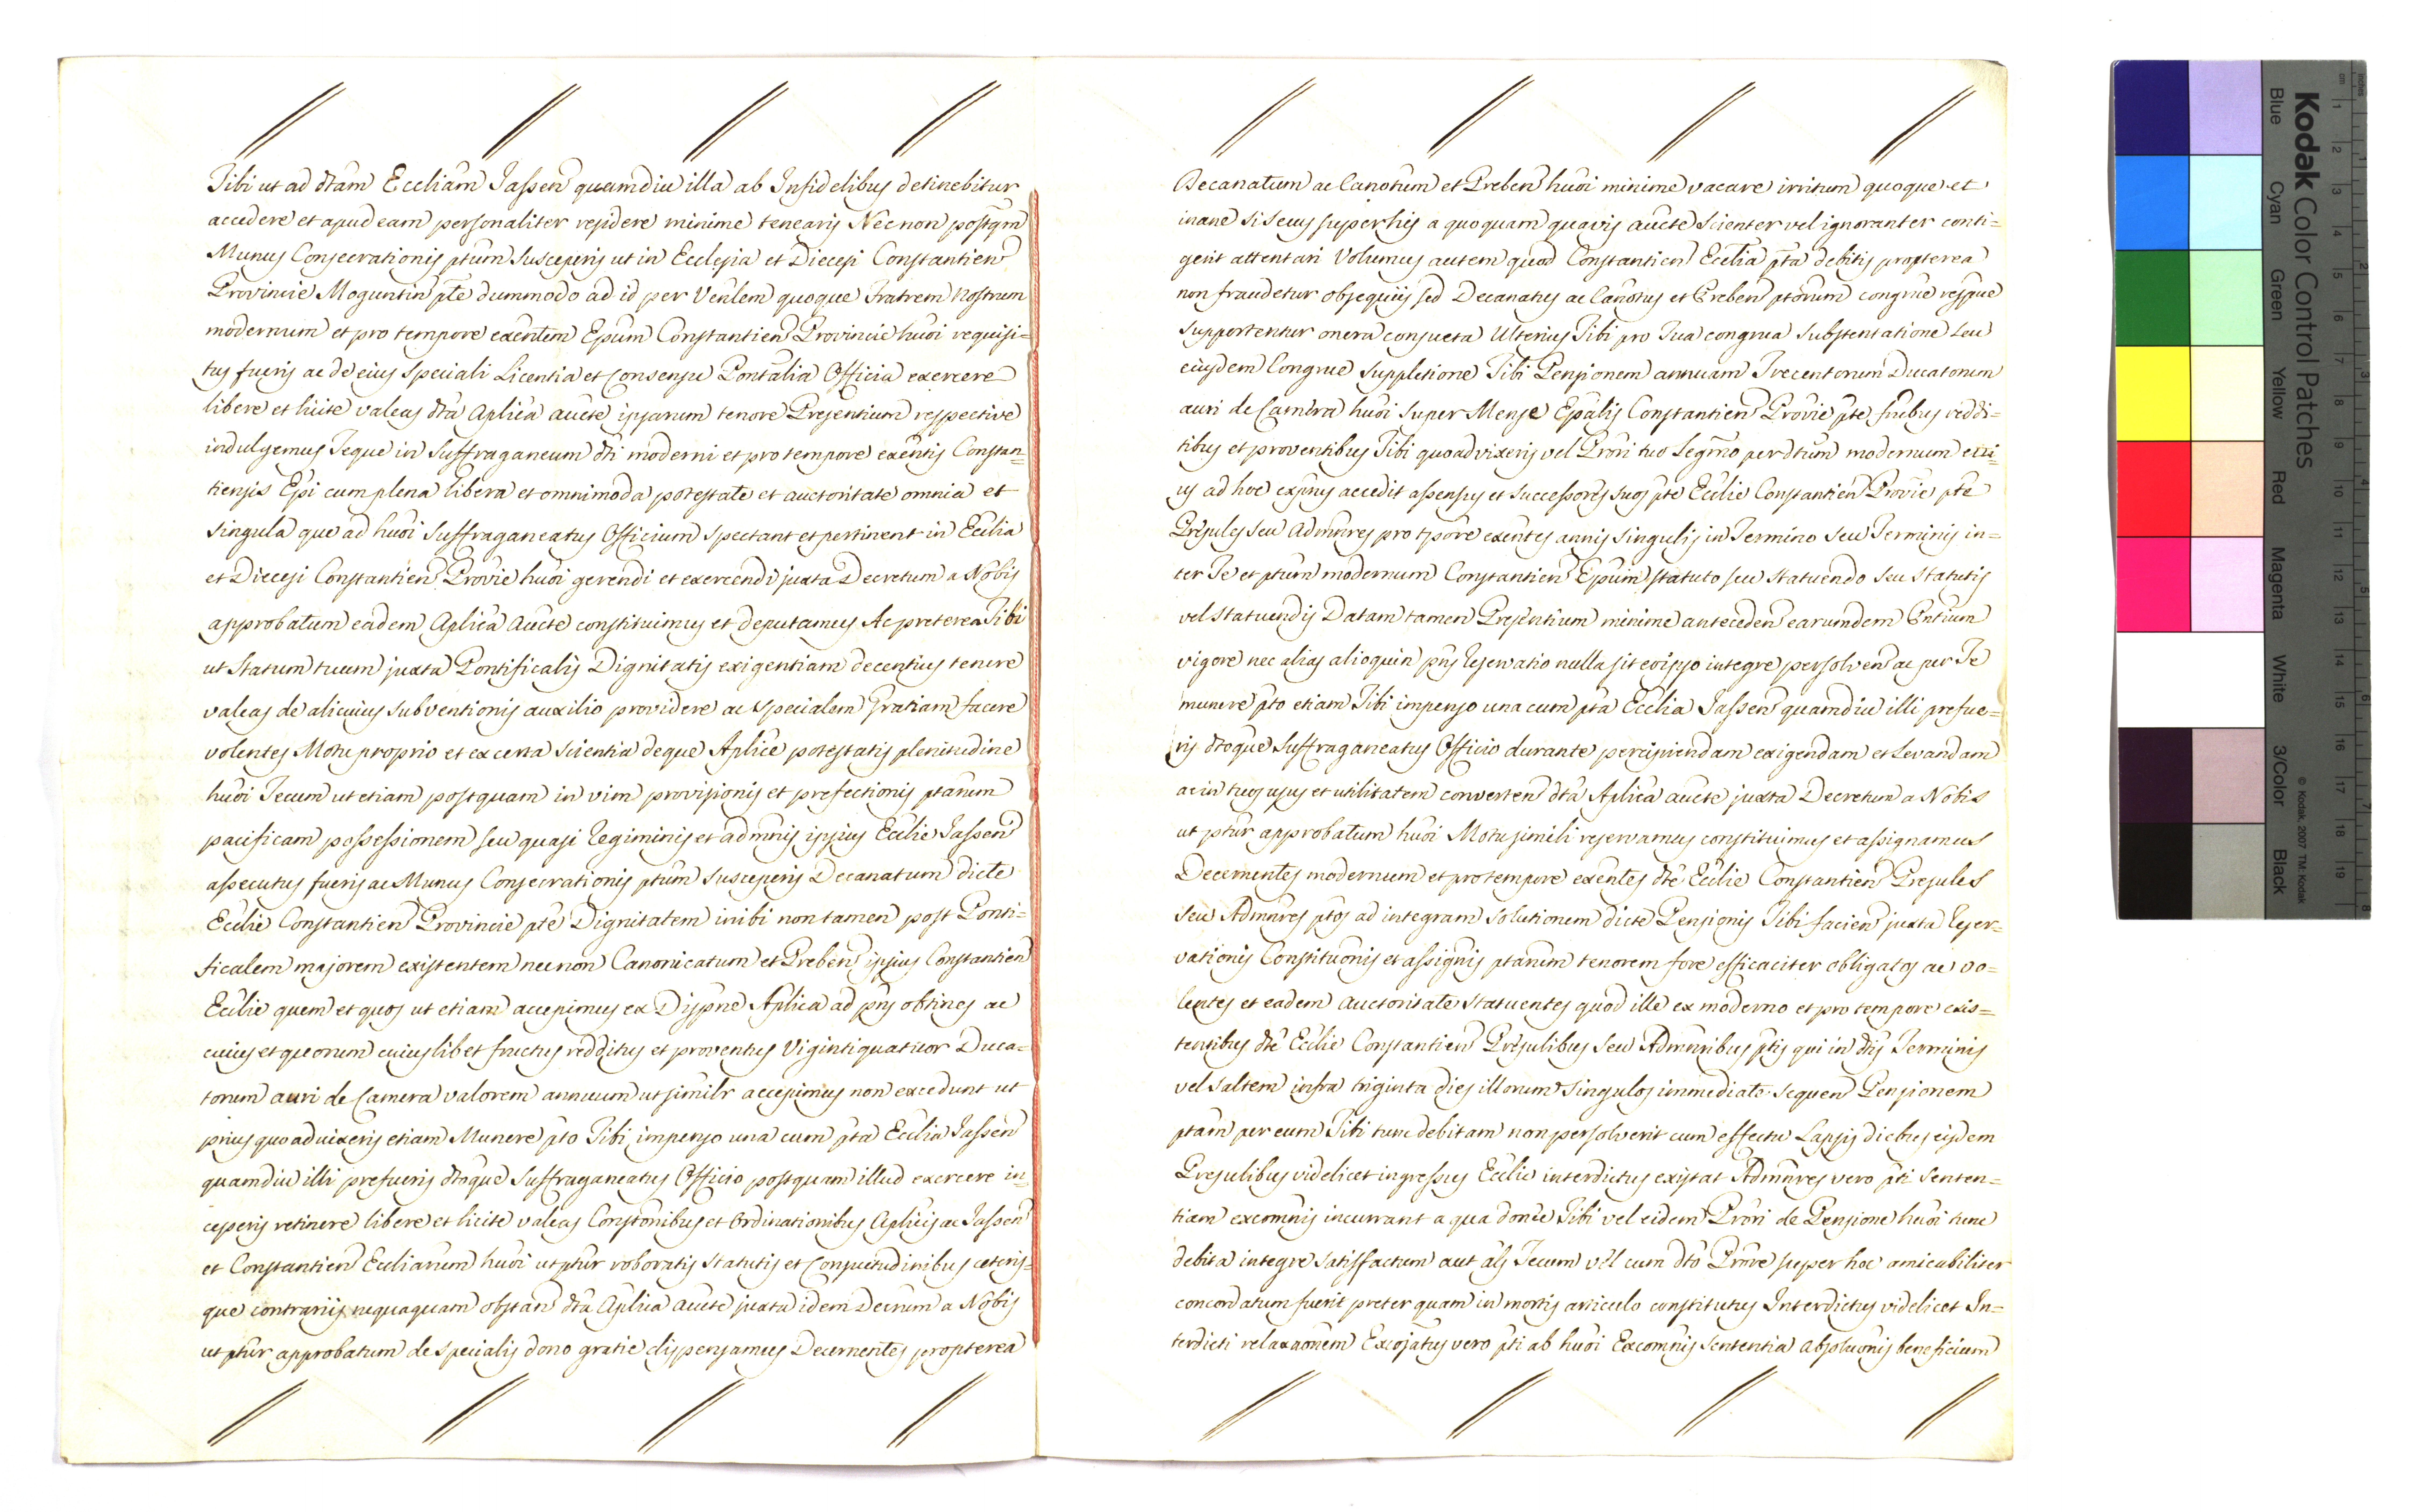 Tibi ut ad dtam Eccliam Jassen quamdiu illa ab Infidelibus detinebitur
accedere et apud eam personaliter residere minime tenearis Necnon postqm
Munus Consecrationis ptum susceperis ut in Ecclesia et Diecesi Constantien
Provincie Moguntin pte dummodo ad id per Venlem quoque Fratrem Nostrum
modernum et pro tempore exentem Epum Constantien Provincie huoi requisi=
tus fueris ac de eius speciali Licentia et Consensu Pontalia Officia exercere
libere et licite valeas dta Aplica aucte ipsarum tenore Presentium respective
indulgemus Teque in Suffraganeum dti moderni et pro tempore exentis Constan=
tiensis Epi cum plena libera et omnimoda potestate et auctoritate omnia et
singula que ad huoi Suffraganeatus Officium spectant et pertinent in Ecclia
et Diecesi Constantien Provie huoi gerendi et exercendi juxta Decretum a Nobis
approbatum eadem Aplica Aucte constituimus et deputamus Ac preterea Tibi
ut Statum tuum juxta Pontificalis Dignitatis exigentiam decentius tenere
valeas de alicuius subventionis auxilio providere ac specialem Gratiam facere
volentes Motu proprio et ex certa scientia deque Aplice potestatis plenitudine
huoi Tecum ut etiam postquam in vim provisionis et prefectionis ptarum
pacificam possessionem seu quasi Regiminis et admnis ipsius Ecclie Jassen
assecutus fueris ac Munus Consecrationis ptum susceperis Decanatum dicte
Ecclie Constantien Provincie pte Dignitatem inibi non tamen post Ponti=
ficalem majorem existentem necnon Canonicatum et Preben ipsius Constantien
Ecclie quem et quos ut etiam accepimus ex Dispne Aplica ad pns obtines ac
cuius et quorum cuiuslibet fructus redditus et proventus Vigintiquatuor Duca=
torum auri de Camera valorem annuum ut similr accepimus non excedunt ut
prius quoad vixeris etiam Munere pto Tibi impenso una cum pta Ecclia Jassen
quamdiu illi prefueris dtoque Suffraganeatus Officio postquam illud exercere in=
ceperis retinere libere et licite valeas Constonibus et Ordinationibus Aplicis ac Jassen
et Constantien Eccliarum huoi ut ptur roboratis Statutis et Consuetudinibus ceteris=
que contrariis nequaquam obstan dta Aplica Aucte juxta idem Decrum a Nobis
ut ptur approbatum de specialis dono gratie dispensamus Decernentes propterea
Decanatum ac Canotum et Preben huoi minime vacare irritum quoque et
inane si secus super his a quoquam quavis aucte scienter vel ignoranter conti=
gerit attentari Volumus autem quod Constantien Ecclia pta debitis propterea
non fraudetur obsequiis sed Decanatus ac Canotus et Preben ptorum congrue respue
supportentur onera consueta Ulterius Tibi pro Tua congrua Substentatione seu
eiusdem Congrue Suppletione Tibi Pensionem annuam Trecentorum Ducatorum
auri de Camera huoi super Mense Epalis Constantien Provie pte fructibus reddi=
tibus et proventibus Tibi quoad vixeris vel Prori tuo Legmo per dtum modernum cui=
us ad hoc expnus accedit assensus et successores suos pte Ecclie Constantien Provie pte
Presules seu Admnres pro tpore exentes annis singulis in Termino seu Terminis in=
ter Te et ptum modernum Constantien Epum statuto seu statuendo seu statutis
vel statuendis Datam tamen Presentium minime anteceden earumdem Pntium
vigore nec alias alioquin pns Reservatio nulla sit eo ipso integre persolven ac per Te
munere pto etiam Tibi impenso una cum pta Ecclia Jassen quamdiu illi prefue=
ris dtoque Suffraganeatus Officio durante percipiendam exigendam et Levandam
ac in tuos usus et utilitatem converten dta Aplica aucte juxta Decretum a Nobis
ut ptur approbatum huoi Motu simili reservamus constituimus et assignamus
Decernentes modernum et pro tempore exentes dte Ecclie Constantien Presules
seu Admnres ptos ad integram solutionem dicte Pensionis Tibi facien juxta Reser=
vationis Constituonis et assignis ptarum tenorem fore efficaciter obligatos ac vo=
lentes et eadem Auctoritate statuentes quod ille ex moderno et pro tempore exis=
tentibus dte Ecclie Constantien Presulibus seu Admnribus ptis qui in dtis Terminis
vel saltem infra triginta dies illorum singulos immediate sequen Pensionem
ptam per eum Tibi tunc debitam non persolverit cum effectu Lapsis diebus eisdem
Presulibus videlicet ingressus Ecclie interdictus existat Admnres vero pti Senten=
tiam excomnis incurrant a qua donec Tibi vel eidem Prori de Pensione huoi tunc
debita integre satisfactum aut als Tecum vel cum dto Prore super hoc amicabiliter
concordatum fuerit preterquam in mortis articulo constitutus Interdictus videlicet In=
terdicti relaxaonem Excojatus vero pti ab huoi Excomnis sententia Absoluonis beneficium
Kodak Color Control Patches
Blue
Cyan
Green
Yellow
Red
Magenta
White
3/Color
Black
© Kodak, 2007 TM: Kodak
cm 1 2 3 4 5 6 7 8 9 10 11 12 13 14 15 16 17 18 19
inches 1 2 3 4 5 6 7 8